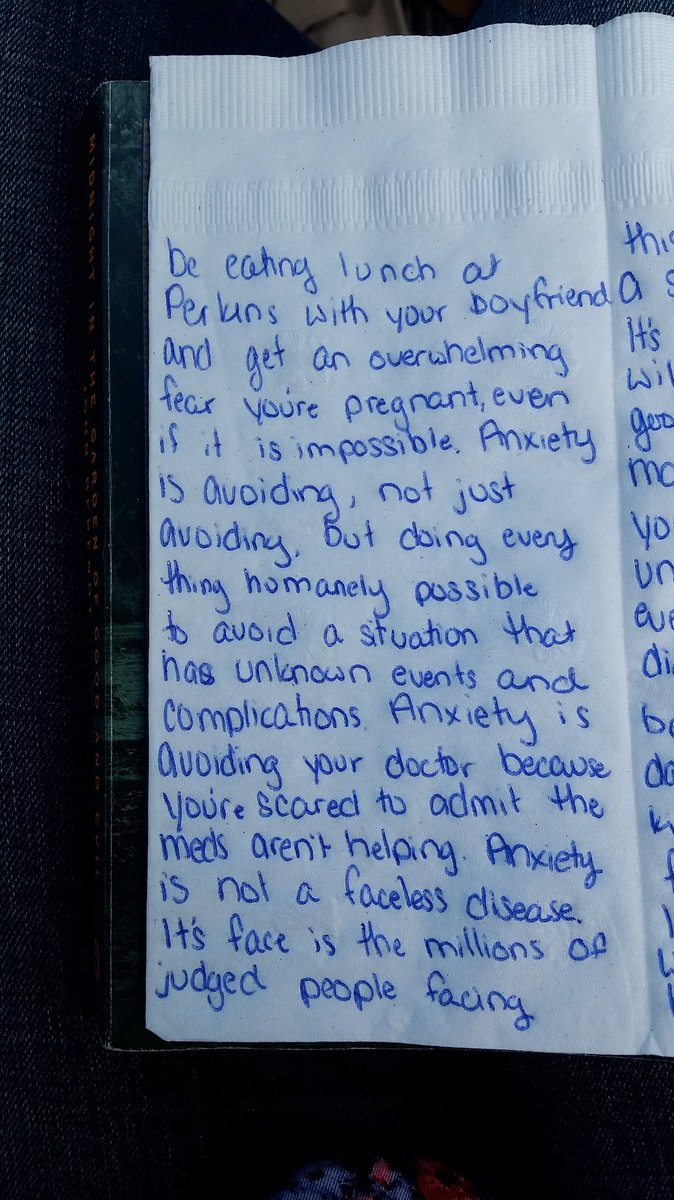 MIDNIGHT IN THE GARDEN OF GOOD AND
JOHN
be eating lunch at
Perkins with your boyfriend
and get an overwhelming
fear you're pregnant, even
if it is impossible. Anxiety
is avoiding, not just
avoiding, but doing every
thing homanely possible
to avoid a stuation that
has unknown events and
complications. Anxiety is
avoiding your doctor because
you're scared to admit the
meds aren't helping. Anxiety
is not a faceless disease.
It's face is the millions of
judged people facing
a
It's